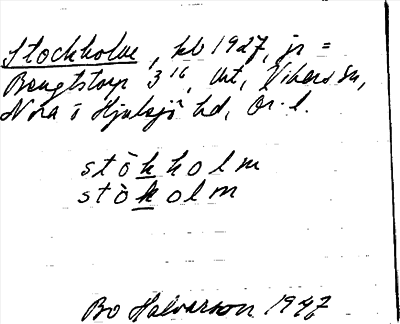 Stockholm, kb 1927, jr =
Bengtstorp 3¹⁶, Vikers sn,
Nora o Hjulsjö hd, Ör. l.
stòkholm
stòkolm
Bo Halvarson 1947